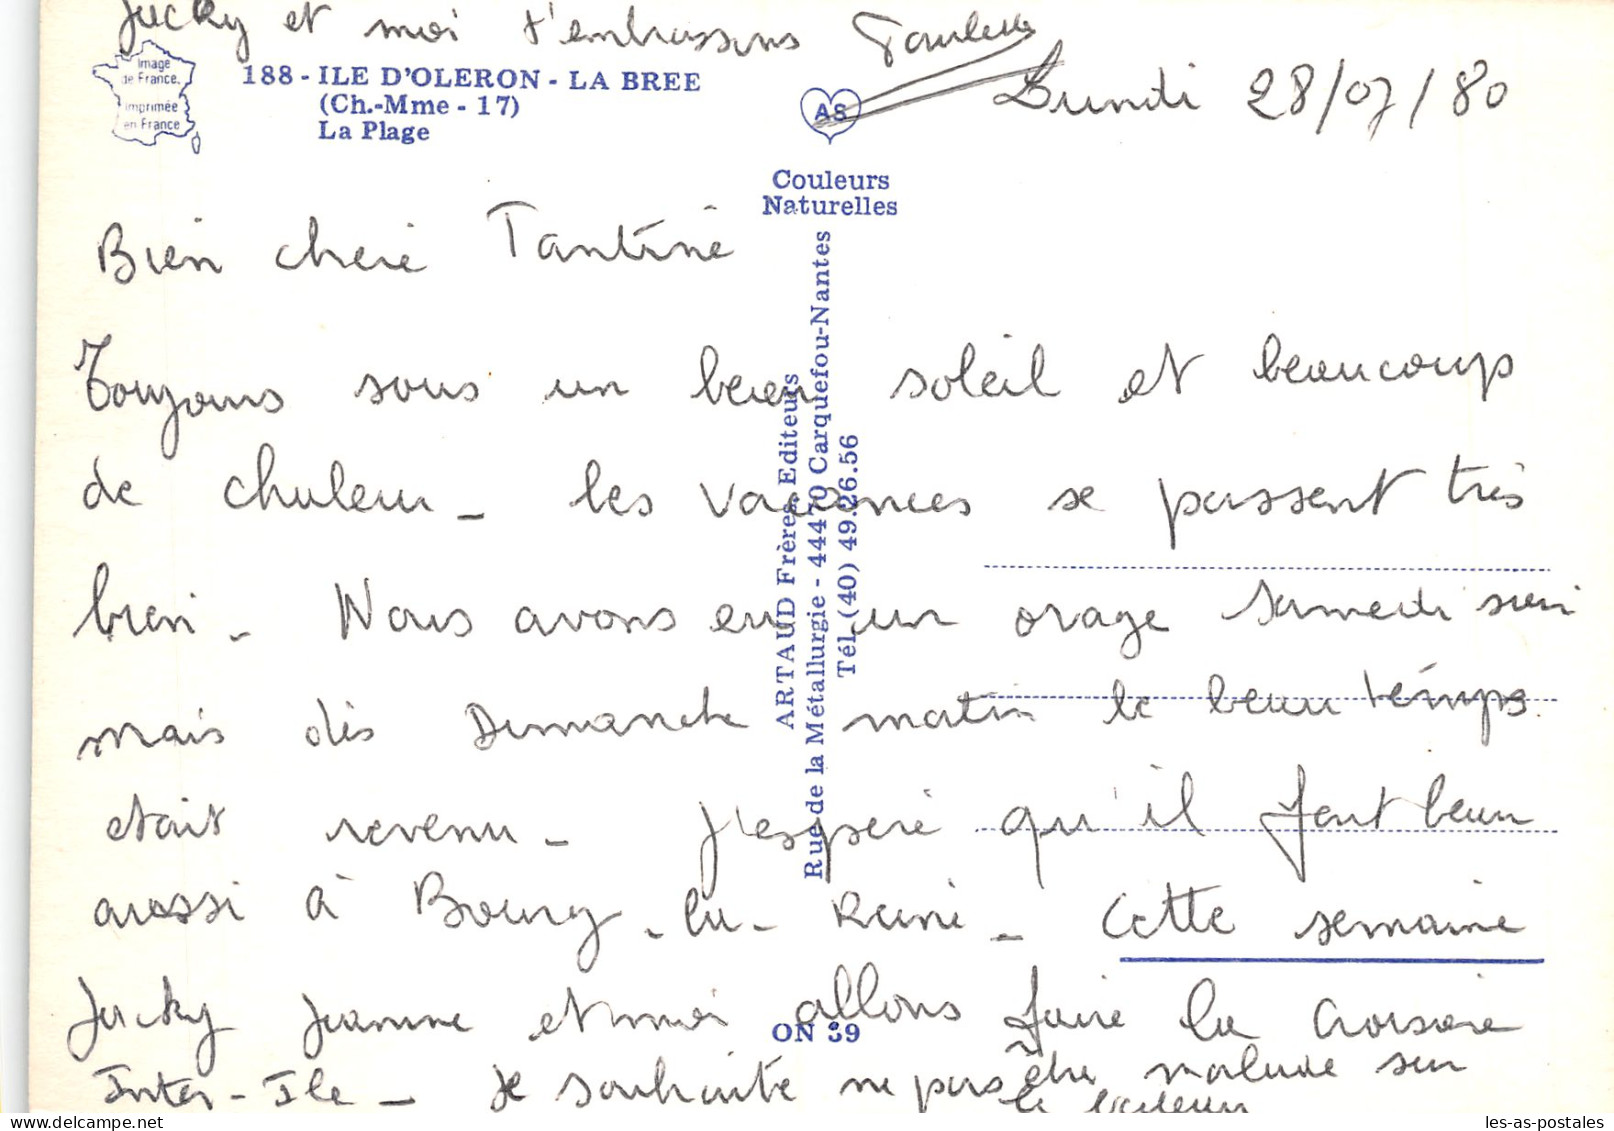 Jacky et moi t'embrassons Paulette
Image
de France.
imprimée
en France
188 - ILE D'OLERON - LA BREE
(Ch.-Mme - 17)
La Plage
AS
Lundi 28/07/80
Couleurs
Naturelles
ARTAUD Frères Editeurs
Rue de la Métallurgie - 44470 Carquefou-Nantes
Tél. (40) 49.26.56
Bien chère Tantine
Toujours sous un beau soleil et beaucoup
de chaleur - les vacances se passent très
bien - Nous avons eu un orage samedi soir
mais dès Dimanche matin le beau temps
était revenu - J'espère qu'il fait beau
aussi à Bourg-la-Reine - Cette semaine
Jacky Jeanne et moi allons faire la croisière
Inter-Ile - Je souhaite ne pas être malade sur
le bateau
ON 39
les-as-postales